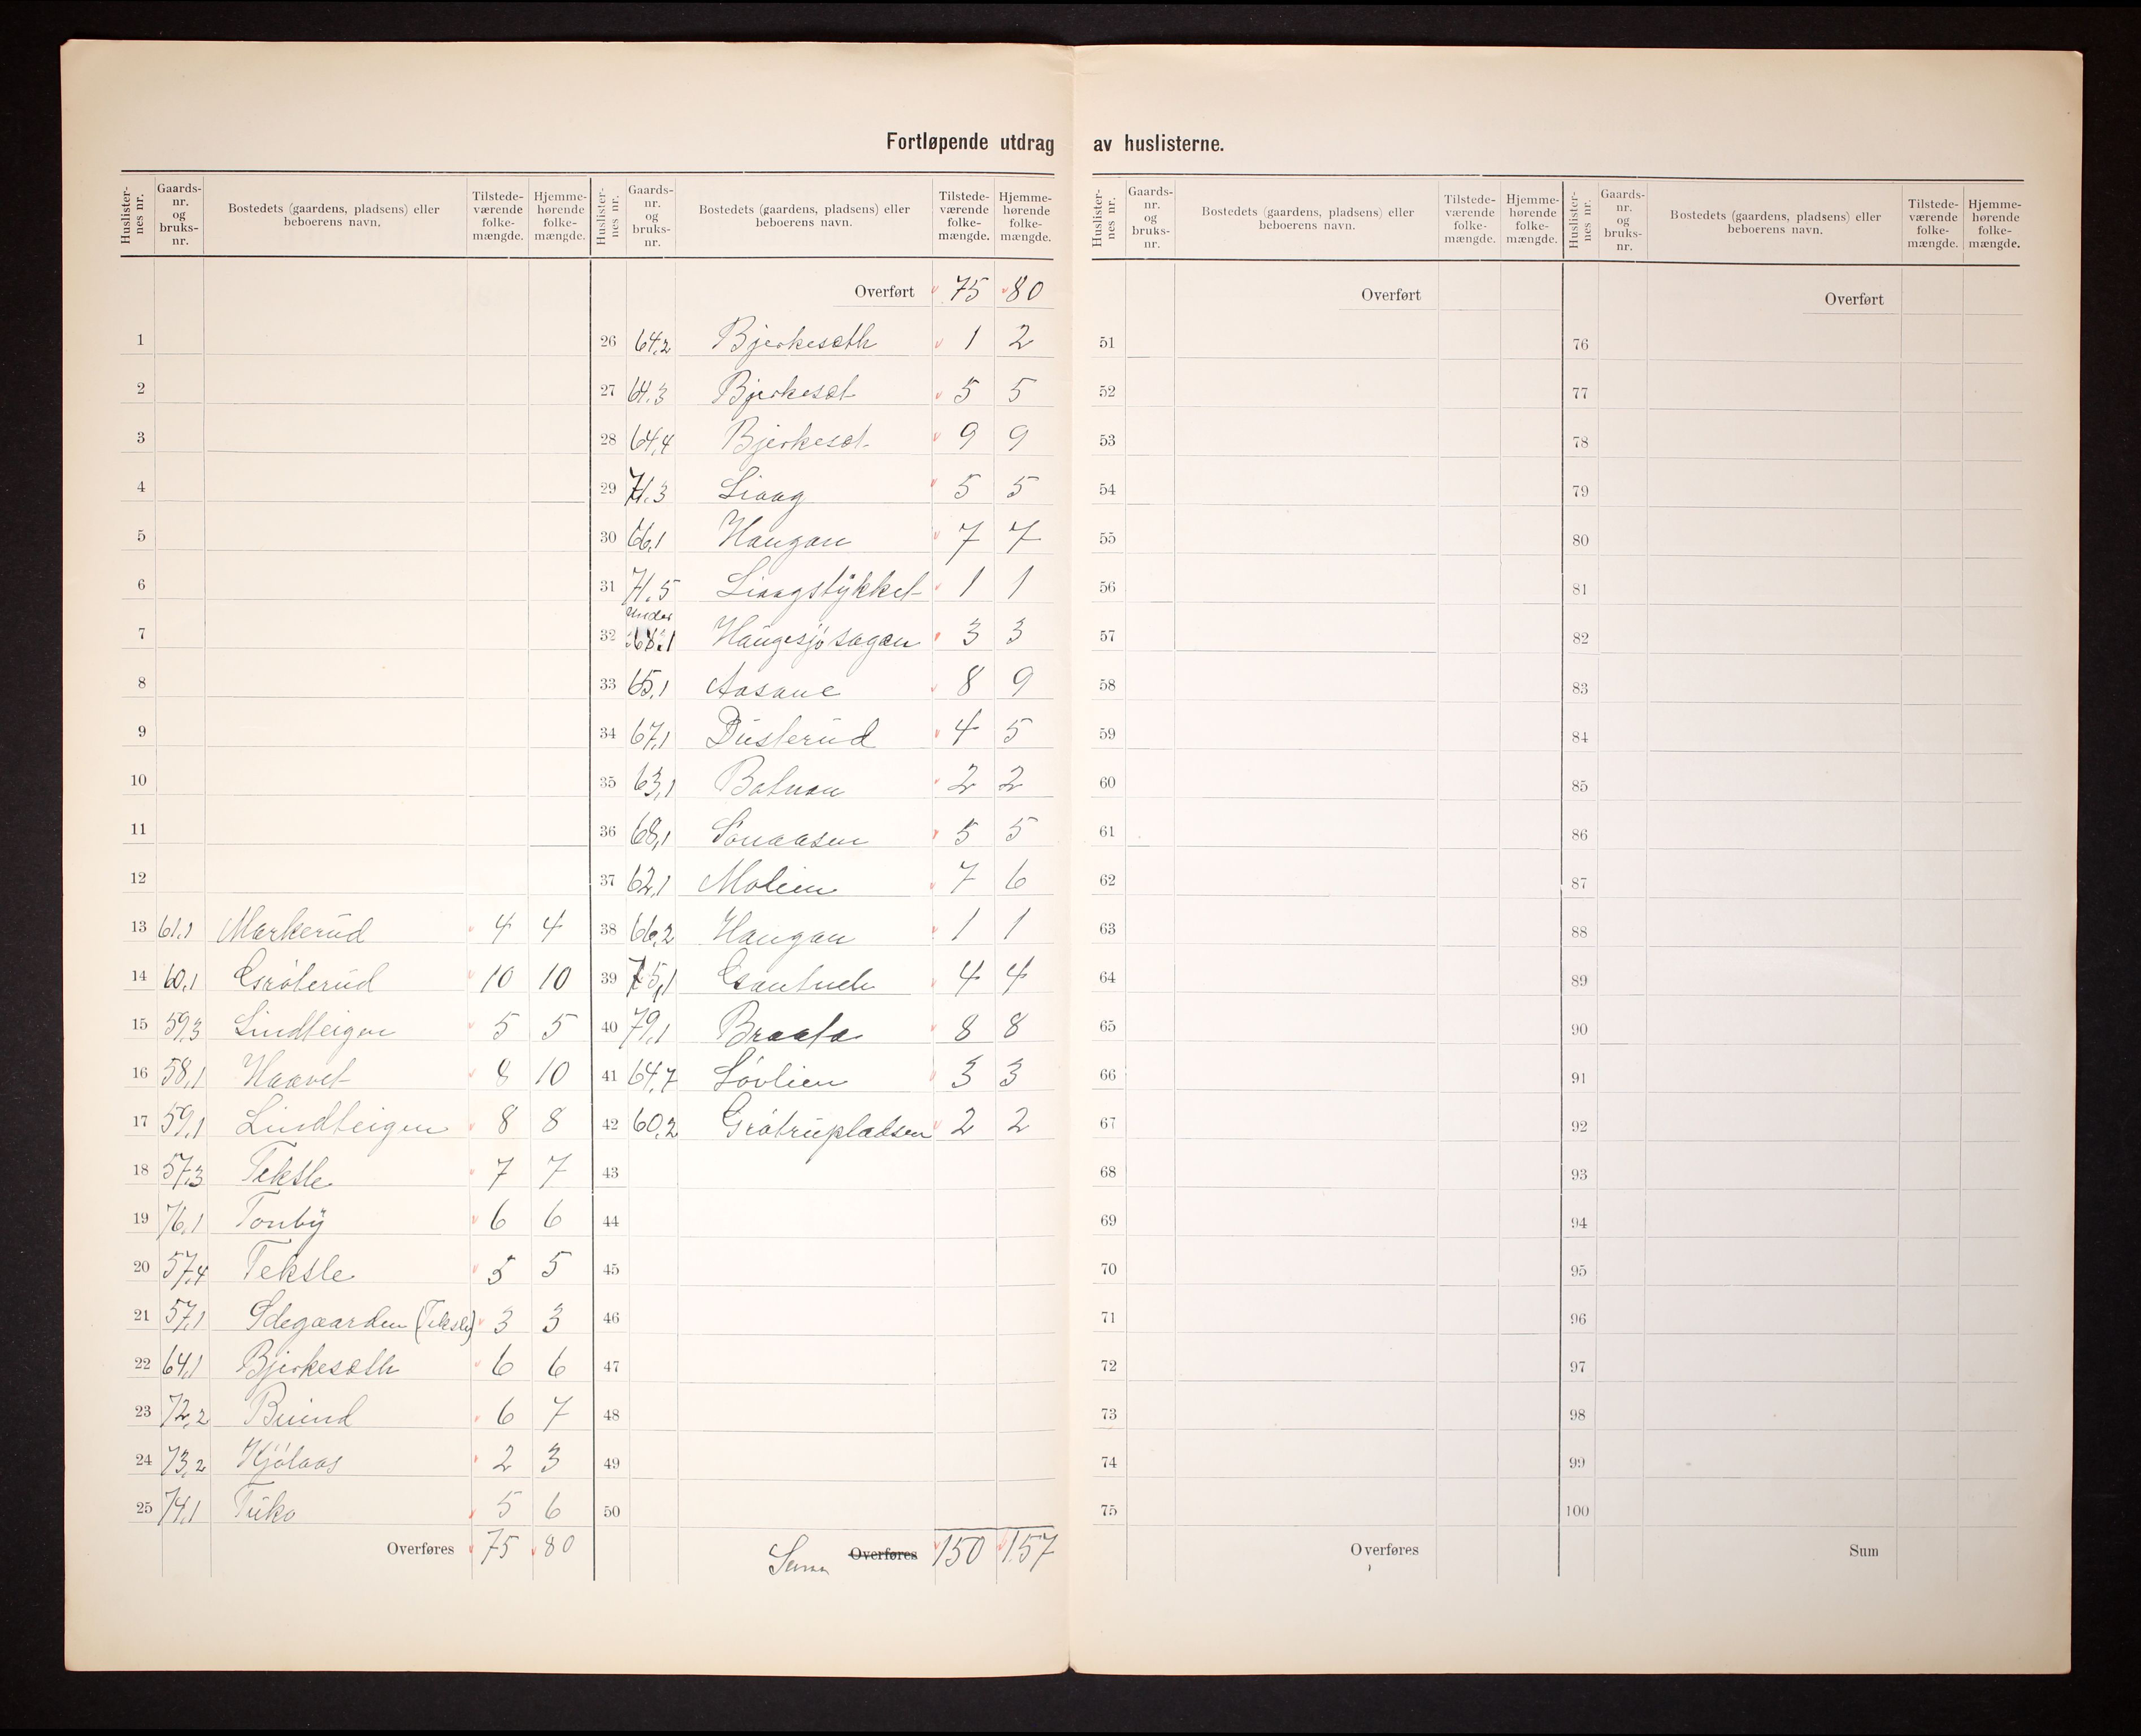 Fortløpende utdrag av huslisterne.
Huslisternes nr. Gaards-nr. og bruks-nr. Bostedets (gaardens, pladsens) eller beboerens navn. Tilstede-værende folke-mængde. Hjemme-hørende folke-mængde.
1
2
3
4
5
6
7
8
9
10
11
12
13 61,1 Markerüd 4 4
14 60,1 Gröterüd 10 10
15 59,3 Lindteigen 5 5
16 58,1 Haavet 8 10
17 59,1 Lindteigen 8 8
18 57,3 Teksle 7 7
19 76,1 Tonby 6 6
20 57,4 Teksle 5 5
21 57,1 Ödegaarden (Teksle) 3 3
22 64,1 Bjerkesæth 6 6
23 72,2 Buind 6 7
24 73,2 Kjölaas 2 3
25 74,1 Tüko 5 6
Overføres 75 80
Huslisternes nr. Gaards-nr. og bruks-nr. Bostedets (gaardens, pladsens) eller beboerens navn. Tilstede-værende folke-mængde. Hjemme-hørende folke-mængde.
Overført 75 80
26 64,2 Bjerkesæth 1 2
27 64,3 Bjerkesæt 5 5
28 64,4 Bjerkesæt 9 9
29 71,3 Liaag 5 5
30 66,1 Haugan 7 7
31 71,5 Liaagstykket 1 1
Under
32 68,1 Haugesjösagen 3 3
33 65,1 Aasane 8 9
34 67,1 Düsterüd 4 5
35 63,1 Botnan 2 2
36 68,1 Sönaasen 5 5
37 62,1 Molien 7 6
38 66,2 Haugan 1 1
39 75,1 4 4
40 79,1 Braata 8 8
41 64,7 Lövlien 3 3
42 60,2 Grötrüpladsen 2 2
43
44
45
46
47
48
49
50
Suma Overføres 150 157
Huslisternes nr. Gaards-nr. og bruks-nr. Bostedets (gaardens, pladsens) eller beboerens navn. Tilstede-værende folke-mængde. Hjemme-hørende folke-mængde.
Overført
51
52
53
54
55
56
57
58
59
60
61
62
63
64
65
66
67
68
69
70
71
72
73
74
75
Overføres
Huslisternes nr. Gaards-nr. og bruks-nr. Bostedets (gaardens, pladsens) eller beboerens navn. Tilstede-værende folke-mængde. Hjemme-hørende folke-mængde.
Overført
76
77
78
79
80
81
82
83
84
85
86
87
88
89
90
91
92
93
94
95
96
97
98
99
100
Sum